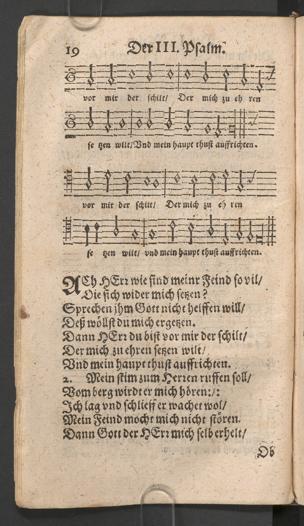 19 Der III. Psalm.
vor mir der schilt/ Der mich zu eh ren
se tzen wilt/ Vnd mein haupt thust auffrichten.
vor mir der schilt/ Der mich zu eh ren
se tzen wilt/ vnd mein haupt thust auffrichten.
ACh HErr wie sind meinr Feind so vil/
Die sich wider mich setzen?
Sprechen jhm Gott nicht helffen will/
Deß wöllst du mich ergetzen.
Dann HErr du bist vor mir der schilt/
Der mich zu ehren setzen wilt/
Vnd mein haupt thust auffrichten.
2. Mein stim zum Herren ruffen soll/
Vom berg wirdt er mich hören:/:
Ich lag vnd schlieff er wachet wol/
Mein Feind mocht mich nicht stören.
Dann Gott der HErr mich selb erhelt/
Ob